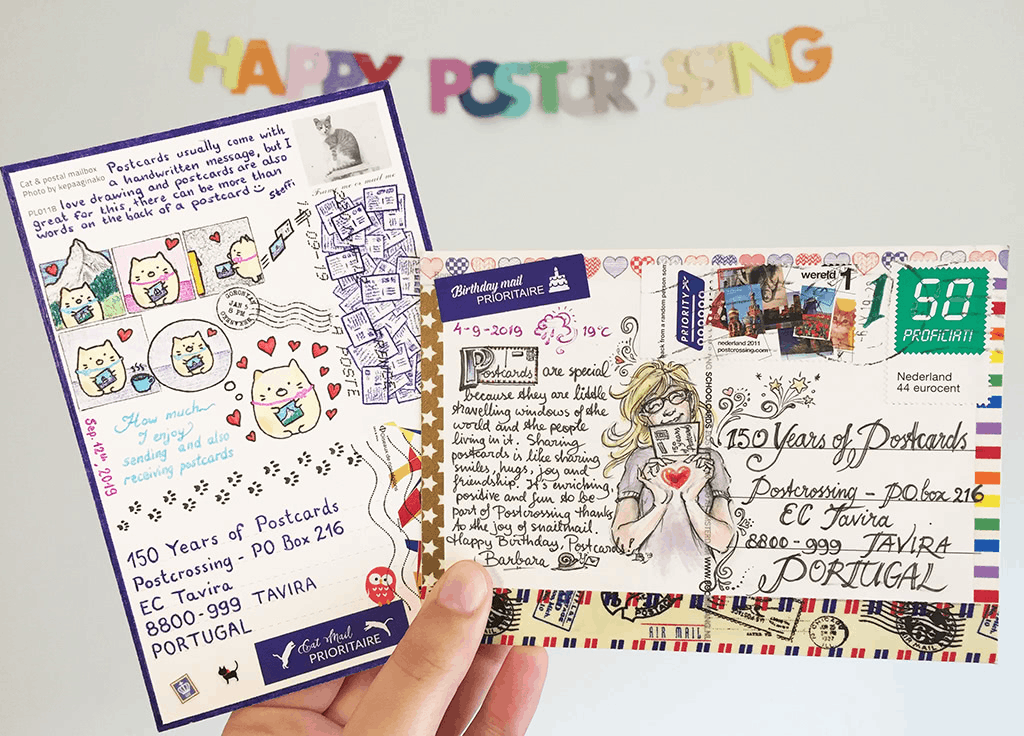 HAPPY POSTCROSSING
Cat & postal mailbox
Photo by kepaaginako
PL0118
Postcards usually come with
a handwritten message, but I
love drawing and postcards are also
great for this, there can be more than
words on the back of a postcard
Steffi
How much
I enjoy
sending and also
receiving postcards
Sep. 12th, 2019
150 Years of Postcards
Postcrossing - PO Box 216
EC Tavira
8800-999 TAVIRA
PORTUGAL
Cat Mail
PRIORITAIRE
Birthday mail
PRIORITAIRE
4-9-2019
19°C
Postcards are special
because they are little
travelling windows of the
world and the people
living in it. Sharing
postcards is like sharing
smiles, hugs, joy and
friendship. It's enriching,
positive and fun to be
part of Postcrossing thanks
to the joy of snailmail.
Happy Birthday, Postcards!
Barbara
PRIORITY
wereld 1
nederland 2011
postcrossing.com
50
PROFICIAT!
Nederland
44 eurocent
150 Years of Postcards
Postcrossing - P.O. box 216
EC Tavira
8800-999 TAVIRA
PORTUGAL
AIR MAIL
CHICAGO